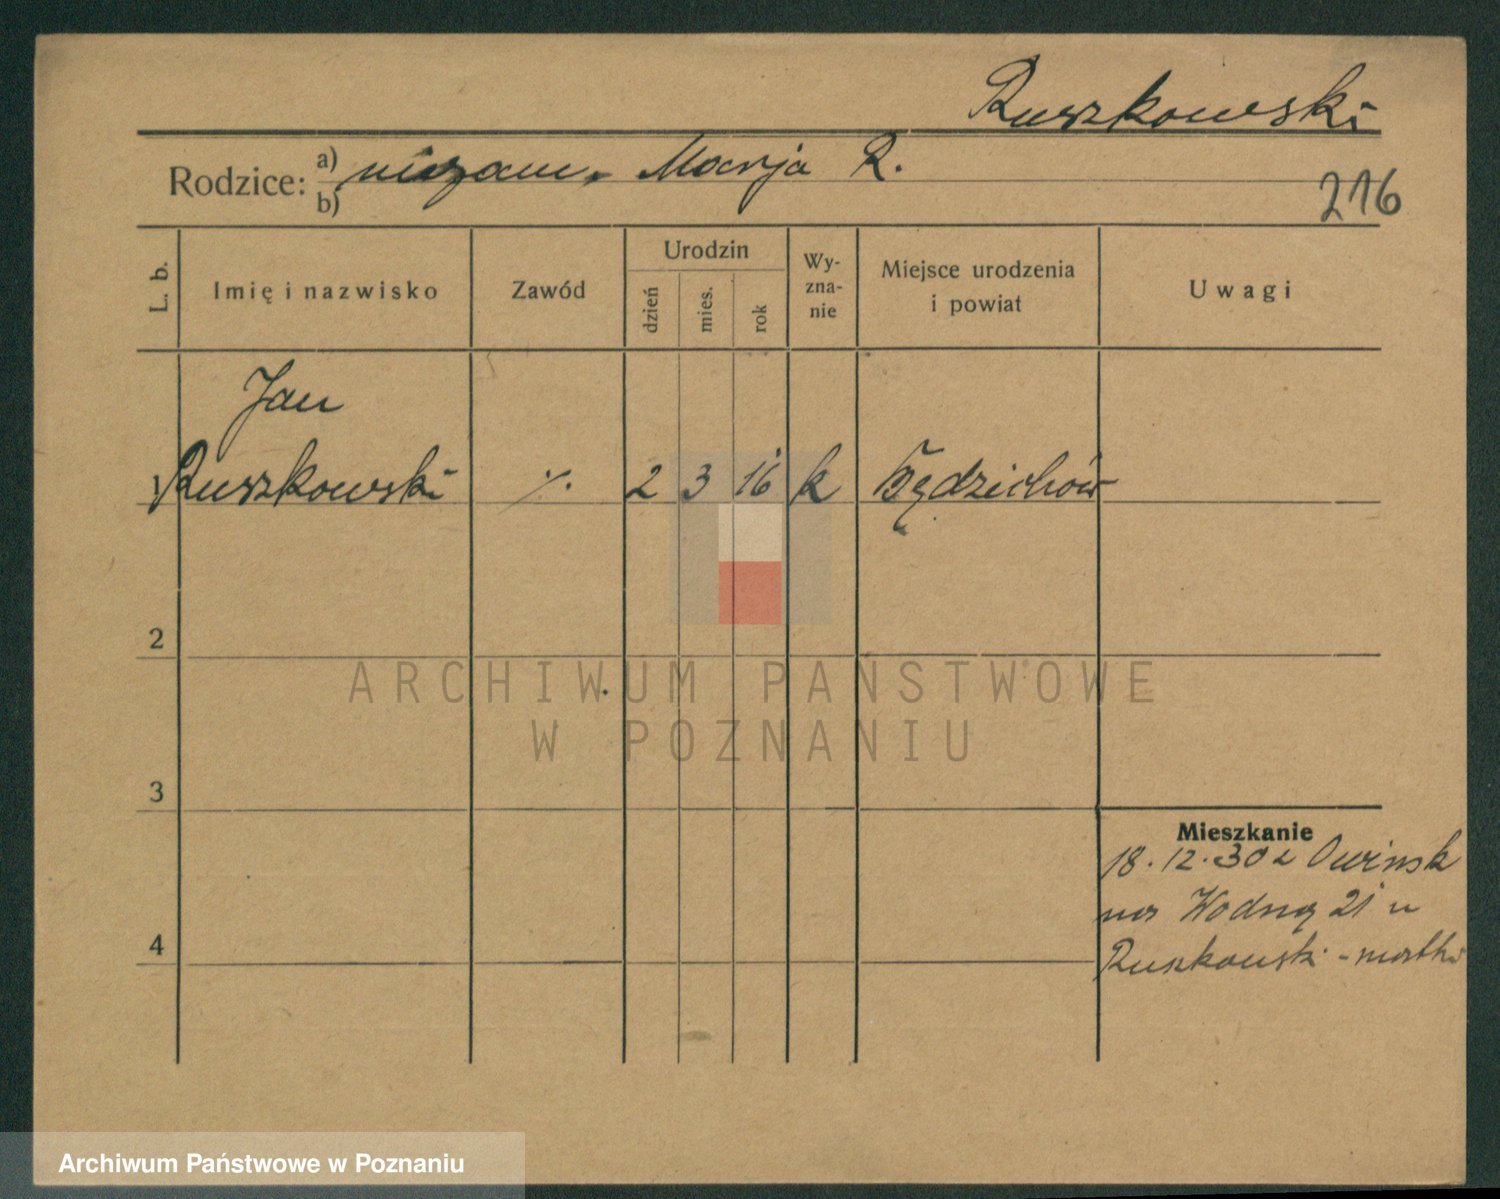 Ruszkowski
Rodzice: a) niezam. Marja R.
b)
216
L. b.
Imię i nazwisko
Zawód
Urodzin
dzień
mies.
rok
Wy-
zna-
nie
Miejsce urodzenia
i powiat
Uwagi
Jan
1 Ruszkowski
·/.
2
3
16
k
Będziechów
2
3
4
Mieszkanie
18.12.30 z Owinsk
na Wodną 21 u
Ruszkowski - matki
ARCHIWUM PAŃSTWOWE
W POZNANIU
Archiwum Państwowe w Poznaniu